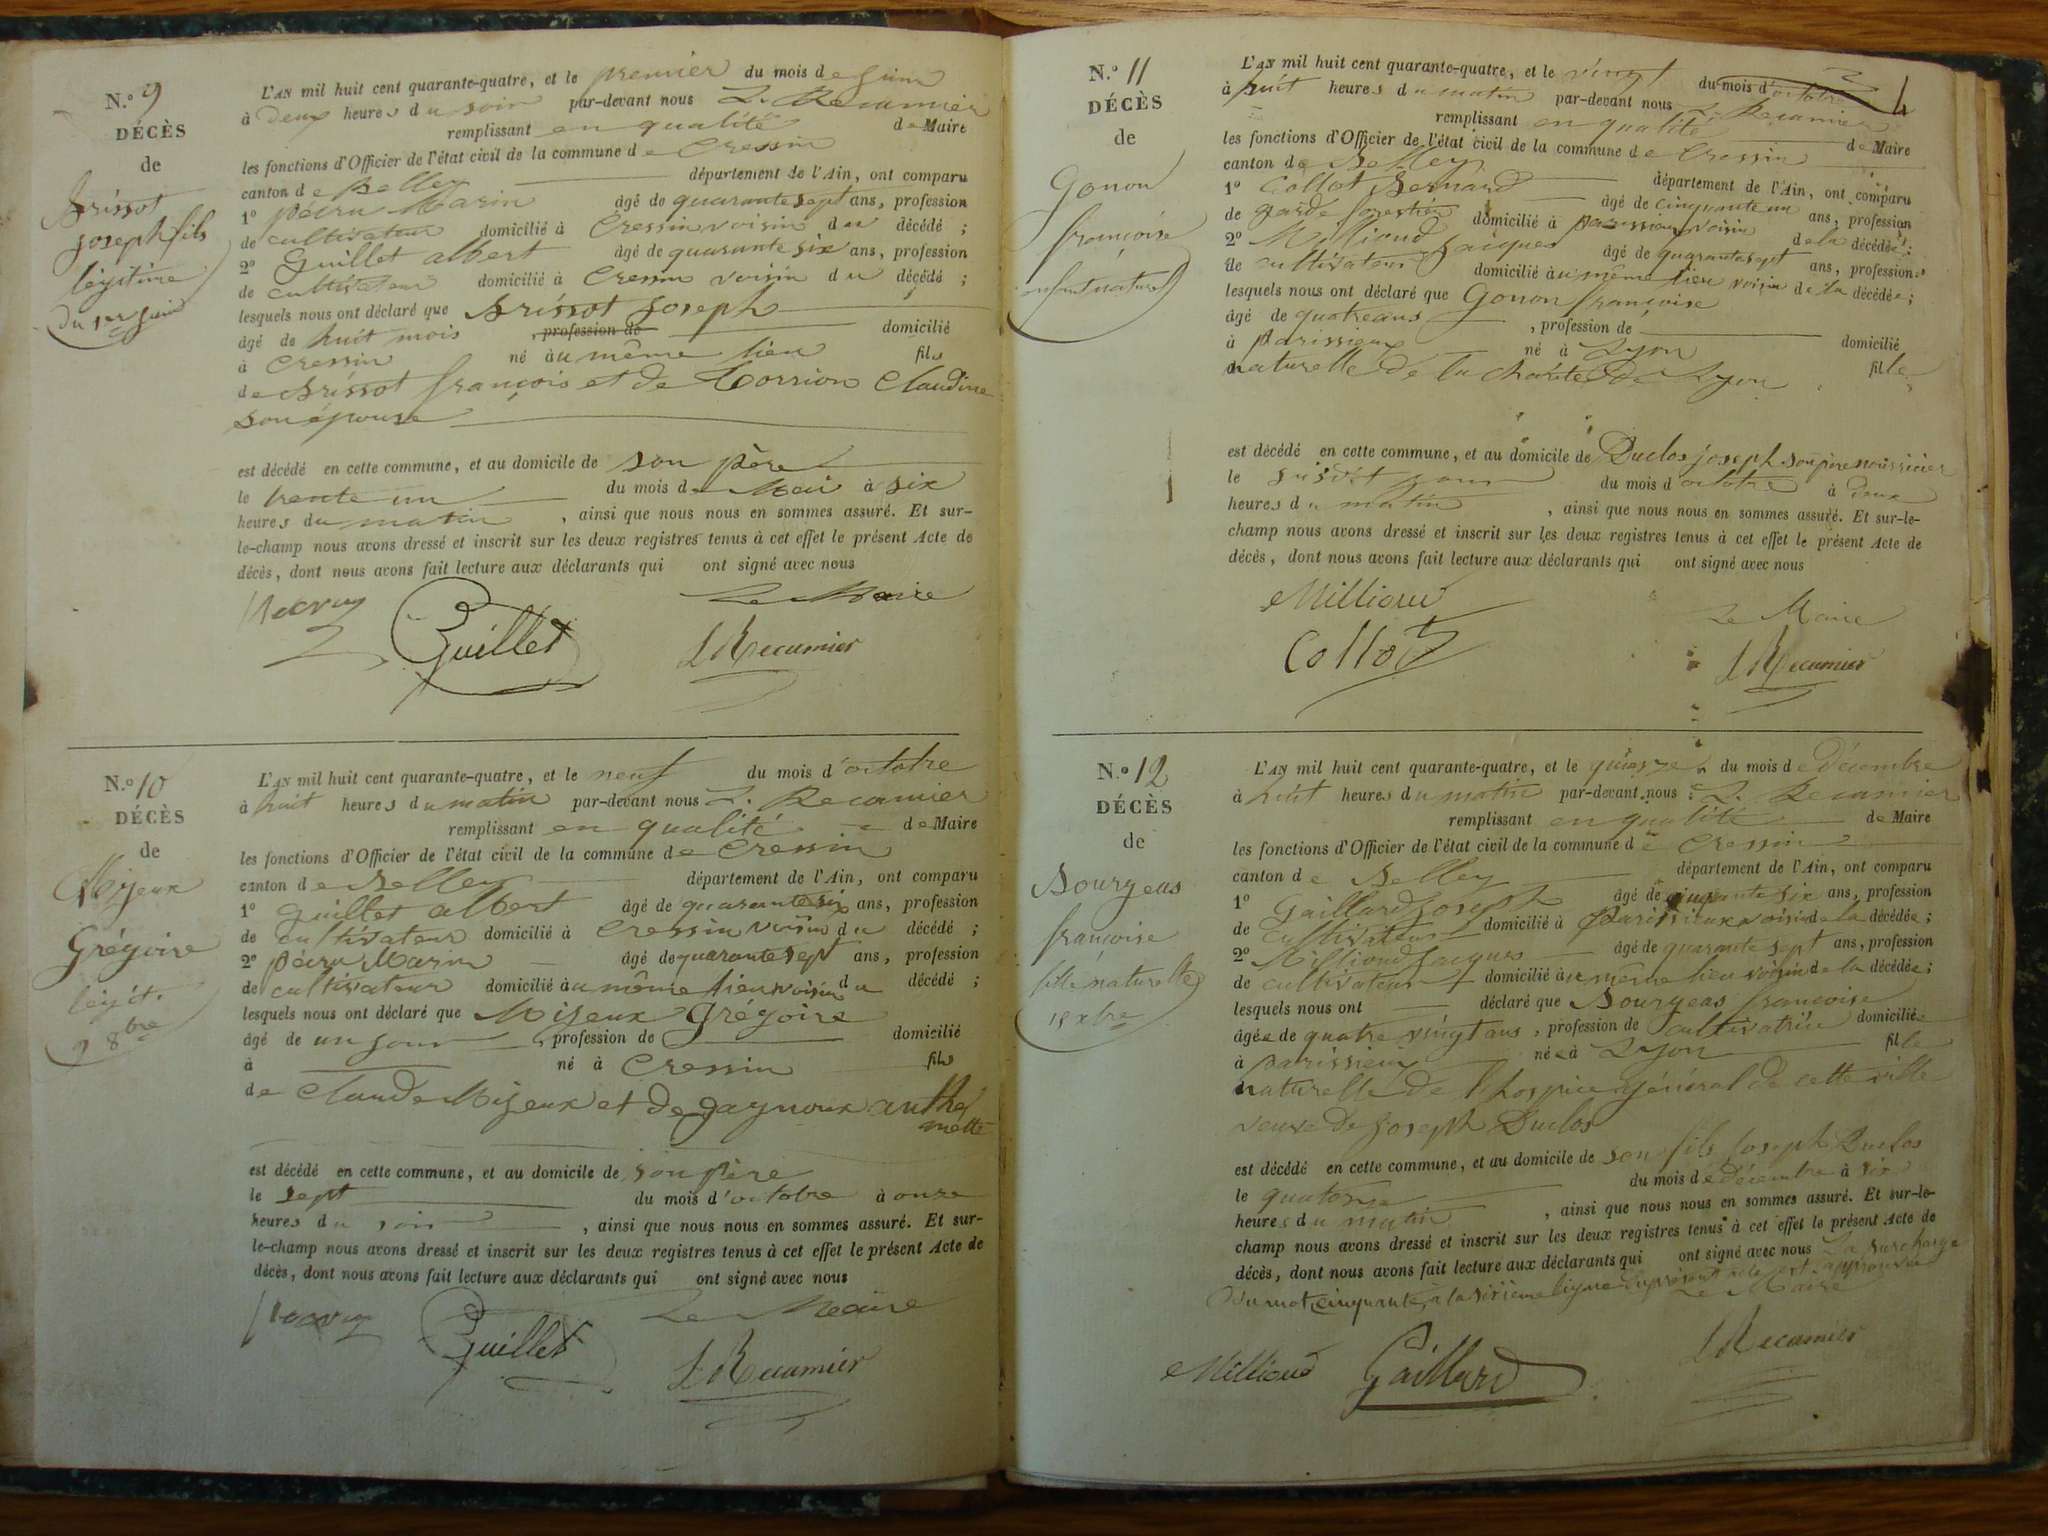 N.° 9
DÉCÈS
de
Brissot
Joseph fils
légitime
Du 1er Juin
L'AN mil huit cent quarante-quatre, et le premier du mois de Juin
à Deux heures du soir par-devant nous L. Recamier
remplissant en qualité de Maire
les fonctions d'Officier de l'état civil de la commune de Cressin
canton de Belley département de l'Ain, ont comparu
1° Marin âgé de quarante sept ans, profession
de cultivateur domicilié à Cressin voisin du décédé ;
2° Guillet albert âgé de quarante six ans, profession
de cultivateur domicilié à Cressin voisin du décédé ;
lesquels nous ont déclaré que Brissot Joseph
âgé de huit mois , profession de domicilié
à Cressin né au même lieu fils
de Brissot françois et de Claudine
son épouse
est décédé en cette commune, et au domicile de son père
le trente un du mois de Mai à six
heures du matin , ainsi que nous nous en sommes assuré. Et sur-
le-champ nous avons dressé et inscrit sur les deux registres tenus à cet effet le présent Acte de
décès, dont nous avons fait lecture aux déclarants qui ont signé avec nous
Le Maire
Guillet L Recamier
N.° 10
DÉCÈS
de
Mijeux
Grégoire
légit.
9 8bre
L'AN mil huit cent quarante-quatre, et le neuf du mois d'octobre
à huit heures du matin par-devant nous L. Recamier
remplissant en qualité de Maire
les fonctions d'Officier de l'état civil de la commune de Cressin
canton de Belley département de l'Ain, ont comparu
1° Guillet albert âgé de quarante six ans, profession
de cultivateur domicilié à Cressin voisin du décédé ;
2° Marin âgé de quarante sept ans, profession
de cultivateur domicilié au même lieu voisin du décédé ;
lesquels nous ont déclaré que Mijeux Grégoire
âgé de un jour , profession de domicilié
à né à Cressin fils
de Claude Mijeux et de anthel
mette
est décédé en cette commune, et au domicile de son père
le sept du mois d'octobre à onze
heures du soir , ainsi que nous nous en sommes assuré. Et sur-
le-champ nous avons dressé et inscrit sur les deux registres tenus à cet effet le présent Acte de
décès, dont nous avons fait lecture aux déclarants qui ont signé avec nous
Le Maire
Guillet L Recamier
N.° 11
DÉCÈS
de
Gonon
françoise
enfant naturel
L'AN mil huit cent quarante-quatre, et le vingt du mois d'octobre
à huit heures du matin par-devant nous L. Recamier
remplissant en qualité de Maire
les fonctions d'Officier de l'état civil de la commune de Cressin
canton de Belley département de l'Ain, ont comparu
1° Collot Bernard âgé de cinquante un ans, profession
de garde forestier domicilié à parissieux voisin de la décédée ;
2° Milliond Jacques âgé de quarante sept ans, profession
de cultivateur domicilié au même lieu voisin de la décédée ;
lesquels nous ont déclaré que Gonon françoise
âgé de quatre ans , profession de domicilié
à Parissieux né à Lyon fille
naturelle de la charité de Lyon
est décédé en cette commune, et au domicile de Duclos joseph son père nourricier
le susdit jour du mois d'octobre à deux
heures du matin , ainsi que nous nous en sommes assuré. Et sur-le-
champ nous avons dressé et inscrit sur les deux registres tenus à cet effet le présent Acte de
décès, dont nous avons fait lecture aux déclarants qui ont signé avec nous
Milliond
Le Maire
Collot
L Recamier
N.° 12
DÉCÈS
de
Bourgeas
françoise
fille naturelle
15 xbre
L'AN mil huit cent quarante-quatre, et le quinze du mois de Décembre
à huit heures du matin par-devant nous L. Recamier
remplissant en qualité de Maire
les fonctions d'Officier de l'état civil de la commune de Cressin
canton de Belley département de l'Ain, ont comparu
1° Gaillard Joseph âgé de cinquante six ans, profession
de cultivateur domicilié à Parissieux voisin de la décédée ;
2° Milliond Jacques âgé de quarante sept ans, profession
de cultivateur domicilié au même lieu voisin de la décédée ;
lesquels nous ont déclaré que Bourgeas françoise
âgée de quatre vingt ans , profession de cultivatrice domiciliée
à parissieux née à Lyon fille
naturelle de l'hospice général de cette ville
veuve de Joseph Duclos
est décédé en cette commune, et au domicile de son fils Joseph Duclos
le quatorze du mois de décembre à six
heures du matin , ainsi que nous nous en sommes assuré. Et sur-le-
champ nous avons dressé et inscrit sur les deux registres tenus à cet effet le présent Acte de
décès, dont nous avons fait lecture aux déclarants qui ont signé avec nous La surcharge
du mot cinquante, à la sixième ligne du présent acte est approuvée
Le Maire
Milliond Gaillard L Recamier